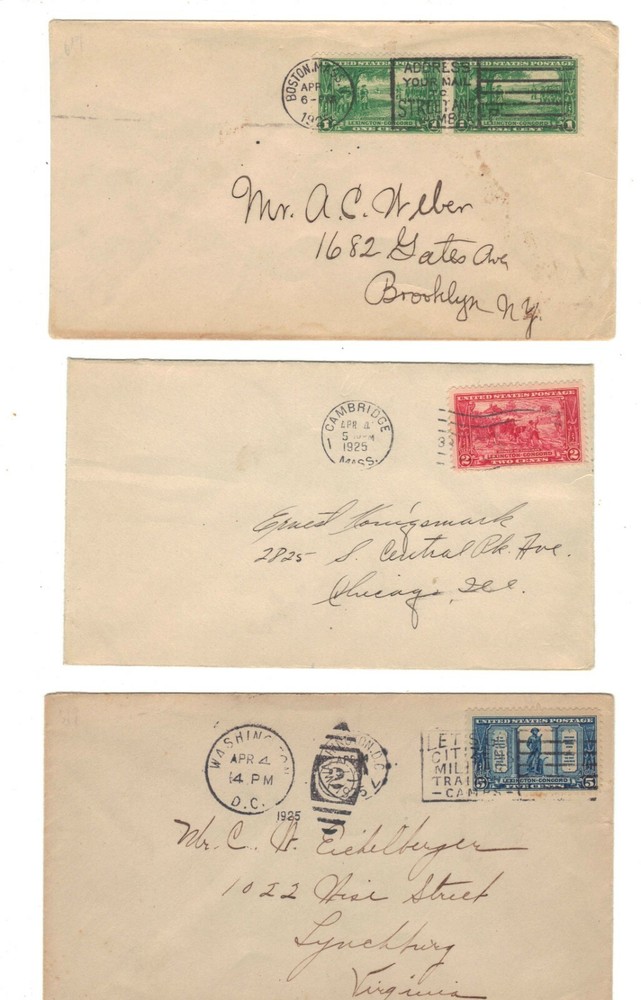 BOSTON, MASS.
APR
6-
192
ADDRESS
YOUR MAIL
TO
STREET AND
UNITED STATES POSTAGE
UNITED STATES POSTAGE
LEXINGTON-CONCORD
LEXINGTON-CONCORD
1 ONE CENT
ONE CENT 1
Mr. A. C. Weber
1682 Gates Ave
Brooklyn N.Y.
CAMBRIDGE
APR 4
5 PM
1925
1
MASS.
UNITED STATES POSTAGE
LEXINGTON-CONCORD
2 TWO CENTS 2
Ernest Konigsmark
2825 S. Central Pk. Ave.
Chicago, Ill.
WASHINGTON
APR 4
4 PM
D.C.
1925
WASHINGTON, D.C.
APR
LET'S
CIT
MIL
TRAI
-CAMPS
UNITED STATES POSTAGE
LEXINGTON-CONCORD
5 FIVE CENTS 5
Mr. C. W. Eichelberger
1022 Wise Street
Lynchburg
Virginia